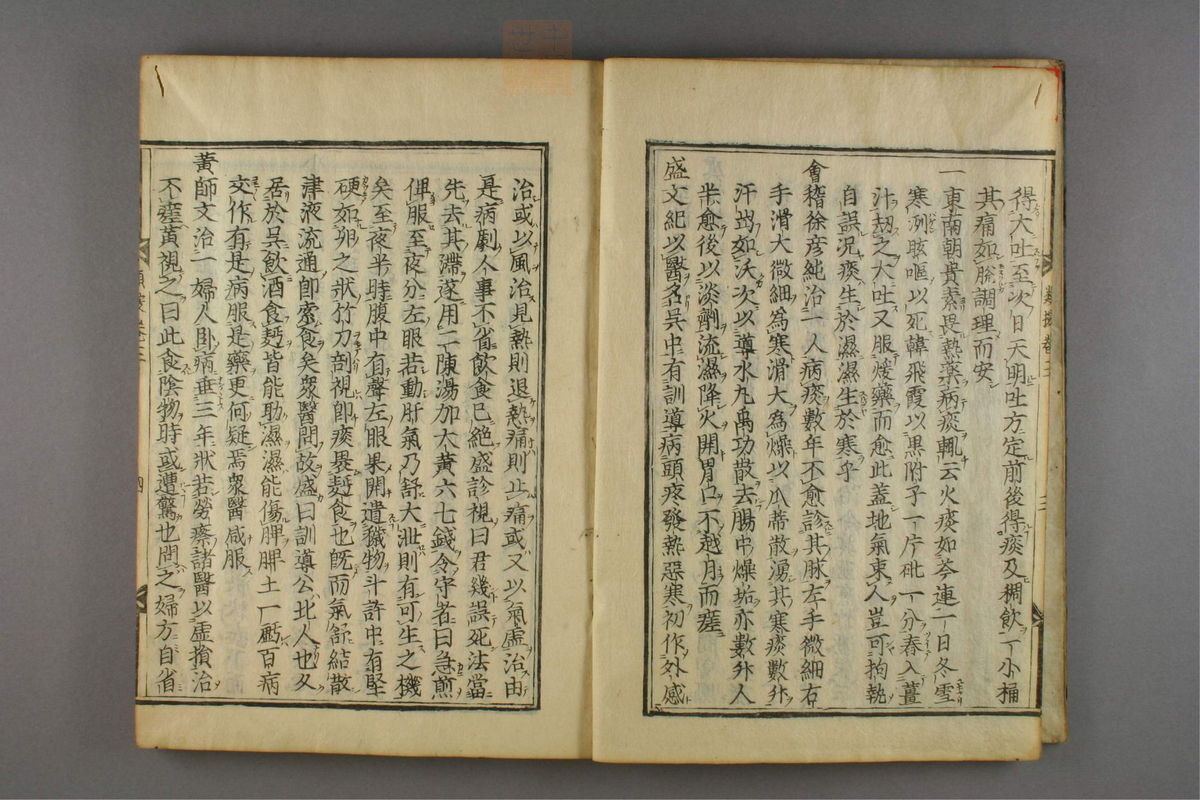 得大吐至次日天明吐方定前後得痰及稠飲一小桶
其痛如脫調理而安
一東南朝貴素畏熱藥病痰輒云火痰如芩連一日冬雪
寒冽眩嘔以死韓飛霞以黒附子一片砒一分舂入薑
汁劫之大吐又服煖藥而愈此蓋地氣束人豈可拘執
自誤况痰生於濕濕生於寒乎
會稽徐彦純治一人病痰數年不愈診其脉左手微細右
手滑大微細為寒滑大為燥以瓜蒂散湧其寒痰數升
汗出如沃次以導水丸禹功散去腸中燥垢亦數升人
半愈後以淡劑流濕降火開胃口不越月而瘥
盛文紀以醫名呉中有訓導病頭疼發熱惡寒初作外感
治或以風治見熱則退熱痛則止痛或又以氣虛治由
是病劇人事不省飲食已絶盛診視曰君幾誤死法當
先去其滯遂用二陳湯加大黄六七錢令守者曰急煎
俾服至夜分左眼若動肝氣乃舒大泄則有可生之機
矣至夜半時腹中有聲左眼果開遺穢物斗許中有堅
硬如卵之狀竹刀剖視即痰裹麪食也既而氣舒結散
津液流通即索食矣衆醫問故盛曰訓導公北人也久
居於呉飲酒食麪皆能助濕濕能傷脾脾土一虧百病
交作有是病服是藥更何疑焉衆醫咸服
黄師文治一婦人卧病垂三年狀若勞瘵諸醫以虛損治
不瘥黄視之曰此食陰物時或遭驚也問之婦方自省
四